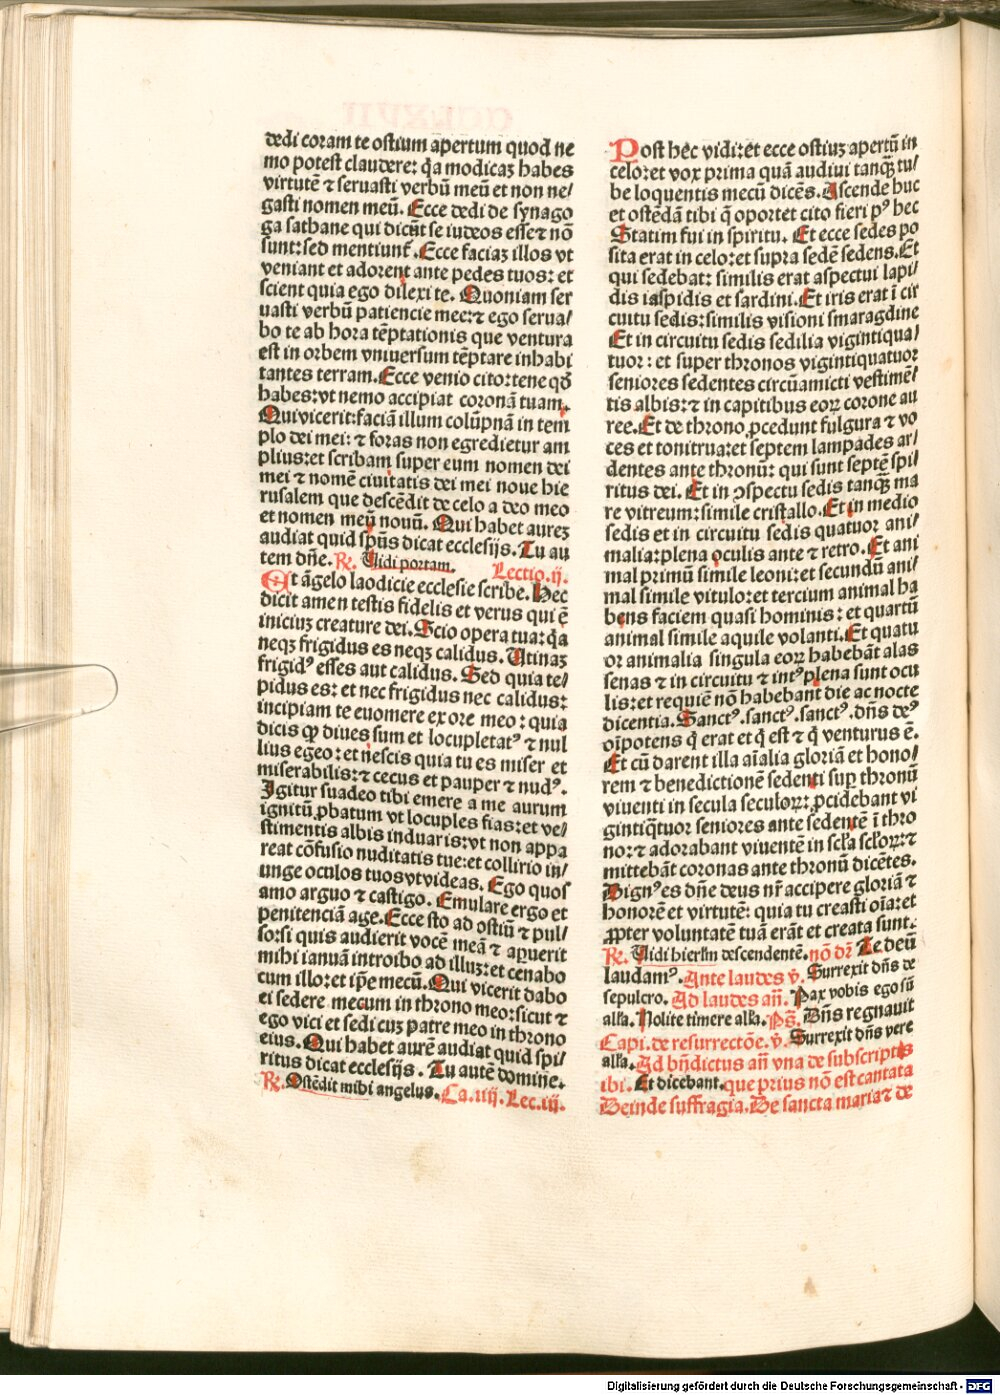 dedi coram te ostium apertum quod ne
mo potest claudere: q̃a modicaʒ habes
virtutē ⁊ seruasti verbū meū et non ne⸗
gasti nomen meū. Ecce dedi de synago
ga sathane qui dicūt se iudeos esse ⁊ nō
sunt: sed mentiunt᷑. Ecce faciaʒ illos vt
veniant et adorent ante pedes tuos: et
scient quia ego dilexi te. Quoniam ser
uasti verbū patiencie mee: ⁊ ego serua⸗
bo te ab hora tēptationis que ventura
est in orbem vniuersum tēptare inhabi
tantes terram. Ecce venio cito: tene qđ
habes: vt nemo accipiat coronā tuam.
Qui vicerit: faciā illum colūpnā in tem
plo dei mei: ⁊ foras non egredietur am
plius: et scribam super eum nomen dei
mei ⁊ nomē ciuitatis dei mei noue hie
rusalem que descēdit de celo a deo meo
et nomen meū nouū. Qui habet aureʒ
audiat quid spūs dicat ecclesijs. Tu au
tem dñe. R̃. Vidi portam. Lectio .ij.
Et āgelo laodicie ecclesie scribe. Hec
dicit amen testis fidelis et verus qui ē
iniciuʒ creature dei. Scio opera tua: q̃a
neqʒ frigidus es neqʒ calidus. Utinaʒ
frigidꝰ esses aut calidus. Sed quia te⸗
pidus es: et nec frigidus nec calidus:
incipiam te euomere ex ore meo: quia
dicis ꝙ diues sum et locupletatꝰ ⁊ nul
lius egeo: et nescis quia tu es miser et
miserabilis: ⁊ cecus et pauper ⁊ nudꝰ.
Igitur suadeo tibi emere a me aurum
ignitū ꝓbatum vt locuples fias: et ve⸗
stimentis albis induaris: vt non appa
reat cōfusio nuditatis tue: et collirio in⸗
unge oculos tuos vt videas. Ego quos
amo arguo ⁊ castigo. Emulare ergo et
penitenciā age. Ecce sto ad ostiū ⁊ pul⸗
so: si quis audierit vocē meā ⁊ apuerit
mihi ianuā introibo ad illuʒ: et cenabo
cum illo: et ip̄e mecū. Qui vicerit dabo
ei sedere mecum in throno meo: sicut ⁊
ego vici et sedi cuʒ patre meo in throno
eius. Qui habet aurē audiat quid spi⸗
ritus dicat ecclesijs. Tu autē domine.
R̃. Ostēdit mihi angelus. Ca. iiij. Lec. iij.
Post hec vidi: et ecce ostiuʒ apertū in
celo: et vox prima quā audiui tanqʒ̃ tu⸗
be loquentis mecū dicēs. Ascende huc
et ostēdā tibi q̄ oportet cito fieri pꝰ hec
Statim fui in spiritu. Et ecce sedes po
sita erat in celo: et supra sedē sedens. Et
qui sedebat: similis erat aspectui lapi⸗
dis iaspidis et sardini. Et iris erat ī cir
cuitu sedis: similis visioni smaragdine
Et in circuitu sedis sedilia vigintiqua⸗
tuor: et super thronos vigintiquatuor
seniores sedentes circūamicti vestimē⸗
tis albis: ⁊ in capitibus eoꝝ corone au
ree. Et de throno ꝓcedunt fulgura ⁊ vo
ces et tonitrua: et septem lampades ar⸗
dentes ante thronū: qui sunt septē spi⸗
ritus dei. Et in ꝯspectu sedis tanqʒ̃ ma
re vitreum: simile cristallo. Et in medio
sedis et in circuitu sedis quatuor ani⸗
malia: plena oculis ante ⁊ retro. Et ani
mal primū simile leoni: et secundū ani⸗
mal simile vitulo: et tercium animal ha
bens faciem quasi hominis: et quartū
animal simile aquile volanti. Et quatu
or animalia singula eoꝝ habebāt alas
senas ⁊ in circuitu ⁊ intꝰ plena sunt ocu
lis: et requiē nō habebant die ac nocte
dicentia. Sanctꝰ. sanctꝰ. sanctꝰ. dñs deꝰ
oīpotens q̇ erat et q̇ est ⁊ q̇ venturus ē.
Et cū darent illa aīalia gloriā et hono⸗
rem ⁊ benedictionē sedenti sup thronū
viuenti in secula seculoꝝ: ꝓcidebant vi
gintiq̃tuor seniores ante sedentē ī thro
no: ⁊ adorabant viuentē in scľa scľoꝝ: ⁊
mittebāt coronas ante thronū dicētes.
Dignꝰ es dñe deus nr̄ accipere gloriā ⁊
honorē et virtutē: quia tu creasti oīa: et
ꝓpter voluntatē tuā erāt et creata sunt.
R̃. Vidi hierlm̄ descendentē. nō dr̄ Te deū
laudamꝰ. Ante laudes v̇. Surrexit dñs de
sepulcro. Ad laudes añ. Pax vobis ego sū
alľa. Nolite timere alľa. Ps̄. Dñs regnauit
Capi. de resurrectōe. v̇. Surrexit dñs vere
alľa. Ad bñdictus añ vna de subscriptis
ibi. Et dicebant. que prius nō est cantata
Deinde suffragia. De sancta maria ⁊ de
Digitalisierung gefördert durch die Deutsche Forschungsgemeinschaft - DFG